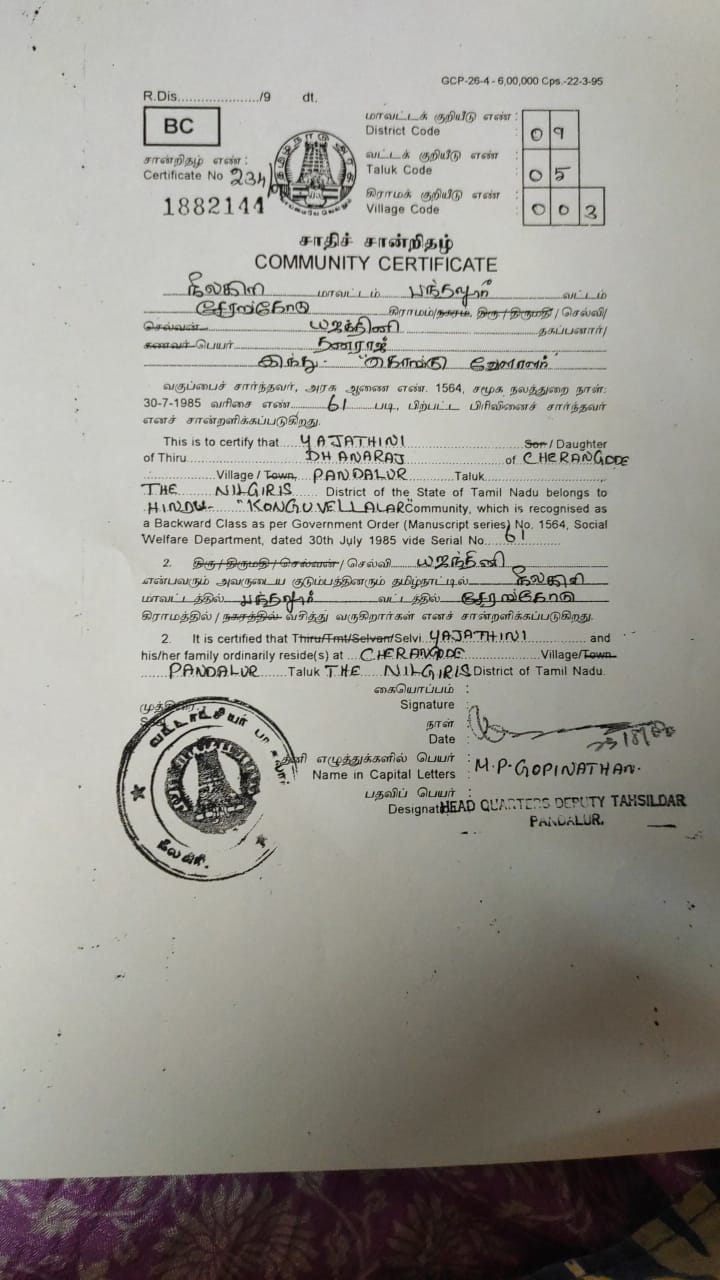 GCP-26-4 - 6,00,000 Cps.-22-3-95
R.Dis...................../9 dt.
BC
மாவட்டக் குறியீடு எண் :
District Code : 09
சான்றிதழ் எண் :
Certificate No 234/
1882144
வட்டக் குறியீடு எண் :
Taluk Code : 05
கிராமக் குறியீடு எண் :
Village Code : 003
சாதிச் சான்றிதழ்
COMMUNITY CERTIFICATE
நீலகிரி மாவட்டம் பந்தலூர் வட்டம்
சேரங்கோடு கிராமம்/நகரம், திரு / திருமதி / செல்வி/
செல்வன் யஜத்தினி தகப்பனார்/
கணவர் பெயர் தனராஜ்
இந்து - "கொங்கு வேளாளர்"
வகுப்பைச் சார்ந்தவர், அரசு ஆணை எண். 1564, சமூக நலத்துறை நாள்:
30-7-1985 வரிசை எண்.........61......படி, பிற்பட்ட பிரிவினைச் சார்ந்தவர்
எனச் சான்றளிக்கப்படுகிறது.
This is to certify that....YAJATHINI Son / Daughter
of Thiru............DHANARAJ of CHERANGODE
Village / Town, PANDALUR Taluk
THE NILGIRIS District of the State of Tamil Nadu belongs to
HINDU- "KONGU VELLALAR" Community, which is recognised as
a Backward Class as per Government Order (Manuscript series) No. 1564, Social
Welfare Department, dated 30th July 1985 vide Serial No...61
2. திரு / திருமதி / செல்வன் / செல்வி யஜத்தினி
என்பவரும் அவருடைய குடும்பத்தினரும் தமிழ்நாட்டில் நீலகிரி
மாவட்டத்தில் பந்தலூர் வட்டத்தில் சேரங்கோடு
கிராமத்தில் / நகரத்தில் வசித்து வருகிறார்கள் எனச் சான்றளிக்கப்படுகிறது.
2. It is certified that Thiru/Tmt/Selvan/Selvi. YAJATHINI and
his/her family ordinarily reside(s) at CHERANGODE Village/Town
PANDALUR Taluk THE NILGIRIS District of Tamil Nadu.
கையொப்பம் :
Signature :
முத்திரை
நாள் :
Date :
தனி எழுத்துக்களில் பெயர் :
Name in Capital Letters : M.P. GOPINATHAN.
பதவிப் பெயர் :
Designat HEAD QUARTERS DEPUTY TAHSILDAR
PANDALUR.
வட்டாட்சியர்
நீலகிரி.